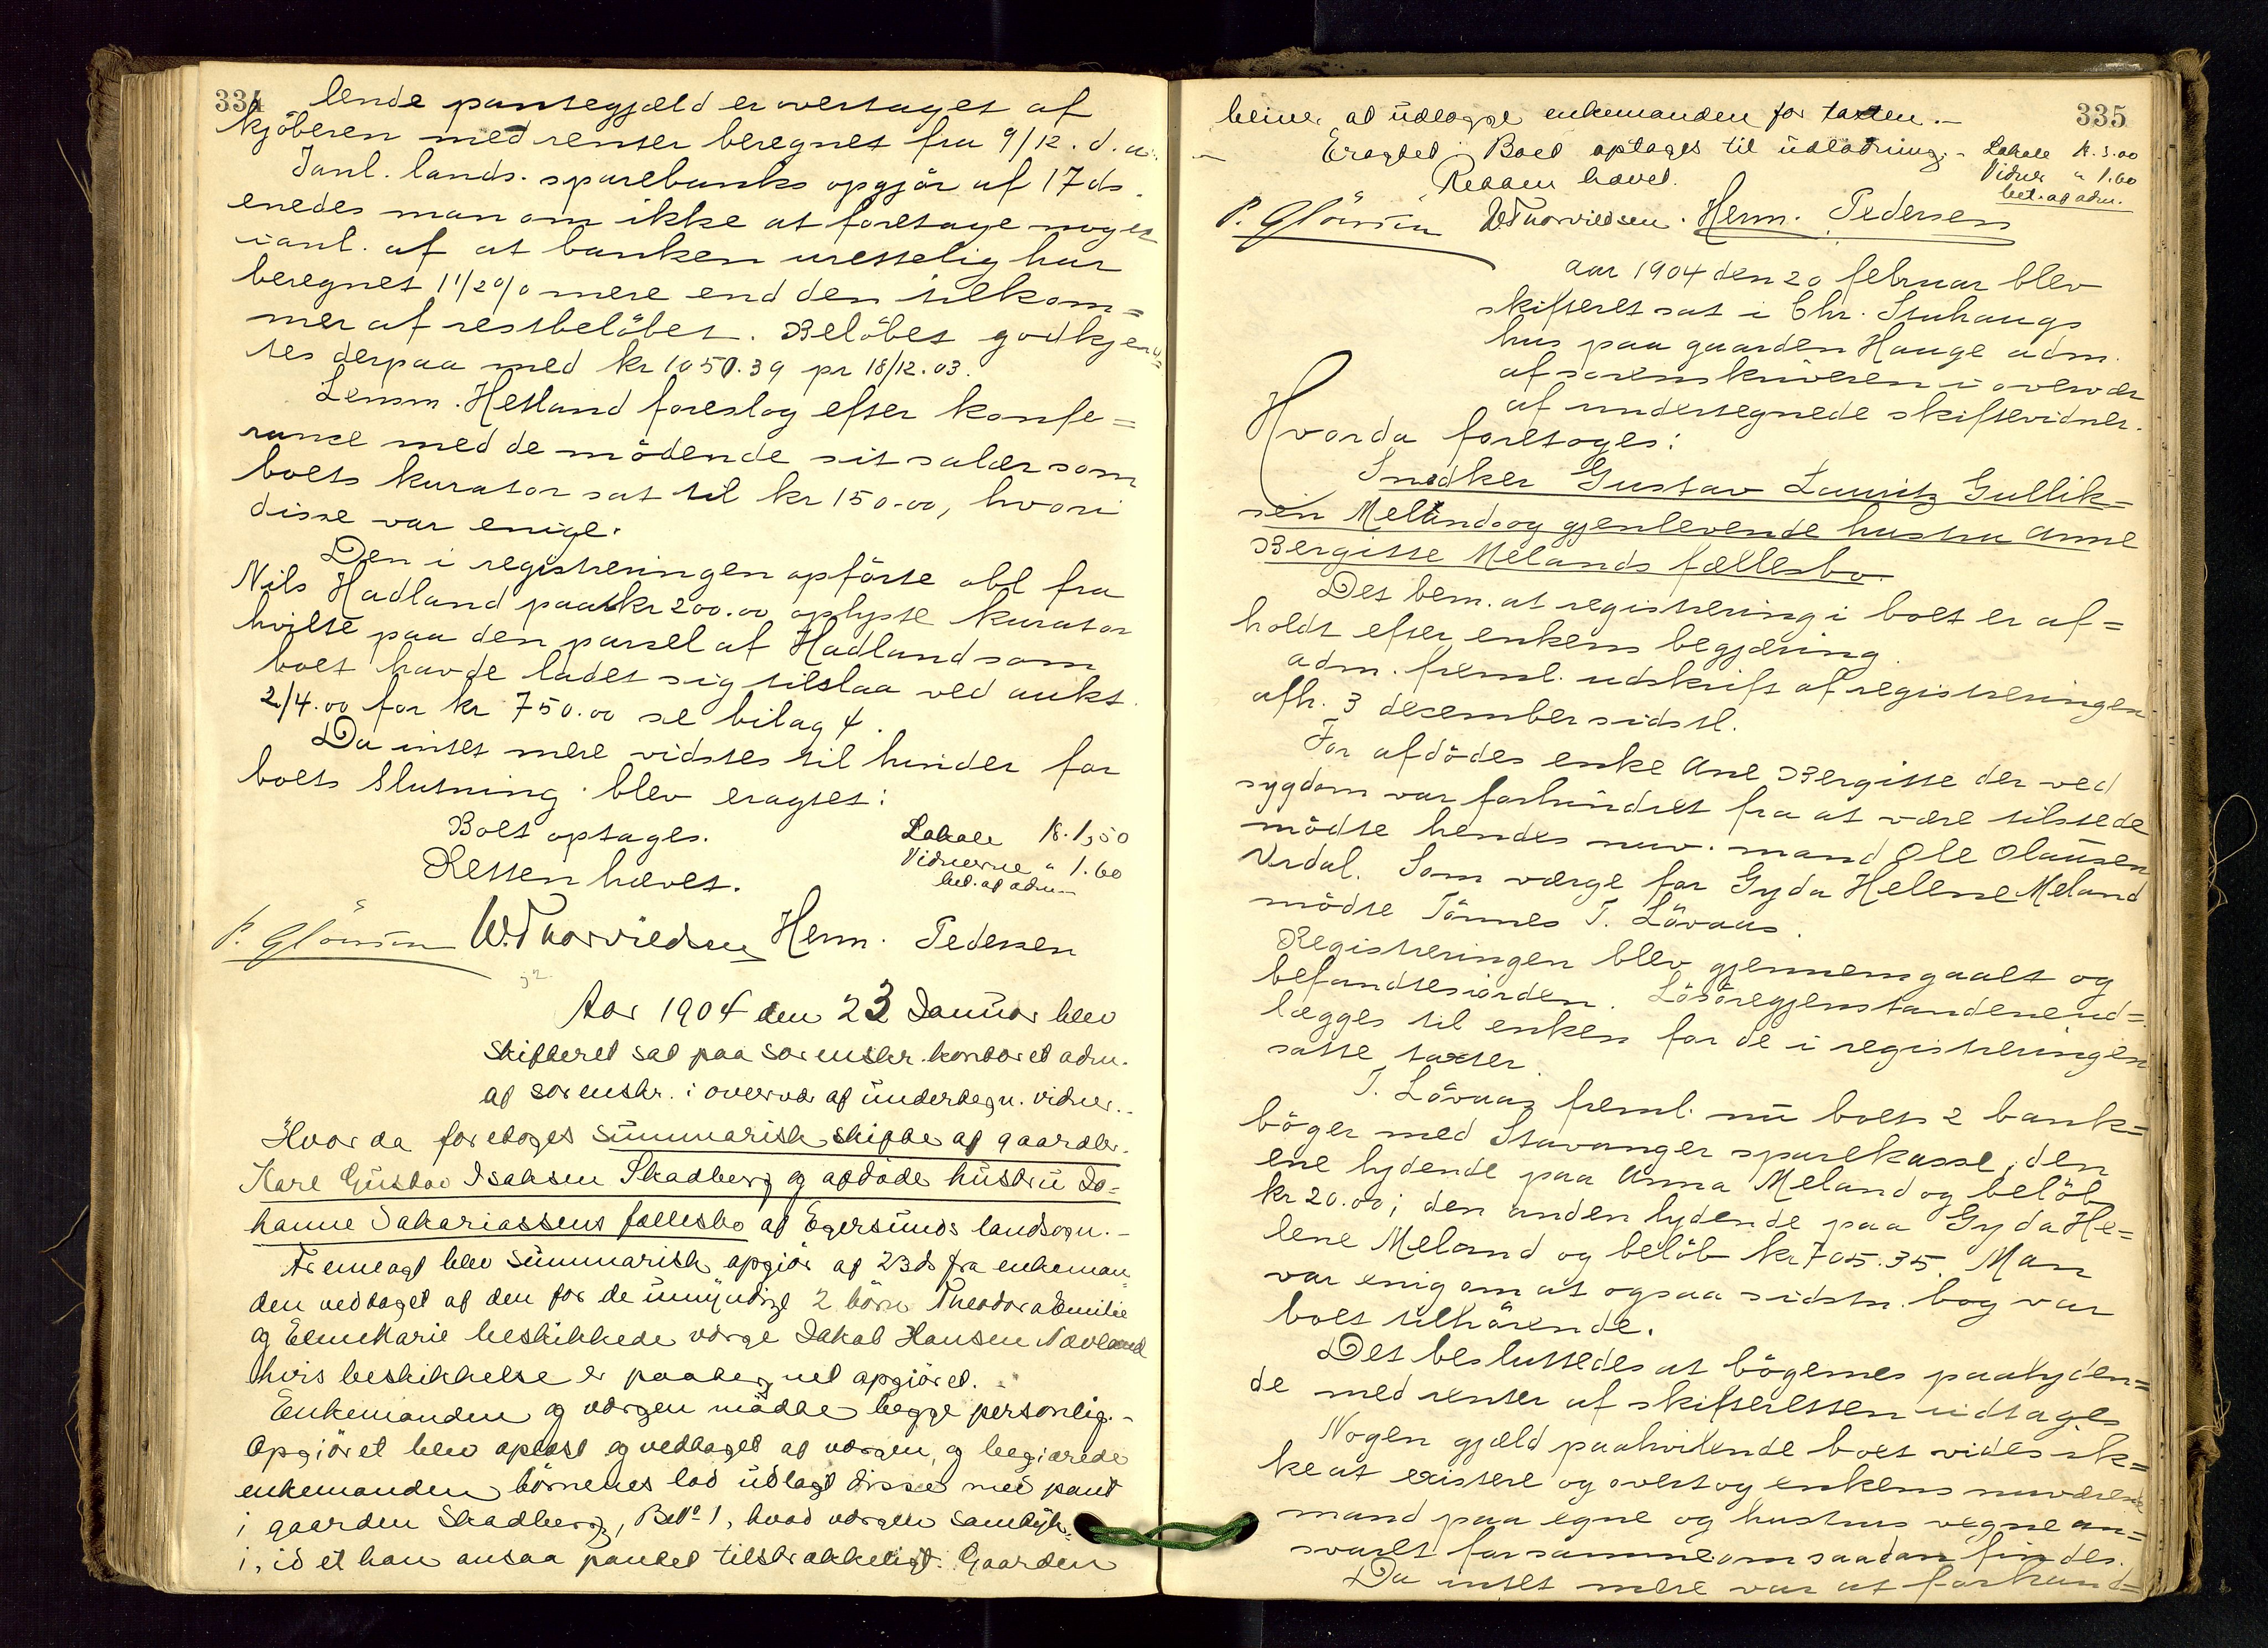 334
lende pantegjæld er overtaget af
kjöberen med renter beregnet fra 9/12. d. a.
Ianl. lands. sparebanks opgjör af 17 ds.
enedes man om ikke at foretage noget
ianl. af at banken uretteligt har
beregnet 1 1/2 % mere end den tilkom=
mer af restbelöbet. Belöbet godkjend=
tes derpaa med kr 1050.39 pr 18/12.03.
Lensm. Hetland foreslog efter konfe=
rance med de mödende sit salær som
boets kurator sat til kr 150.00, hvori
disse var enige.
Den i registreringen opförte obl fra
Nils Hadland paa kr 200.00 oplyste kurator
hvilte paa den parsel af Hadland som
boet havde ladet sig tilslaa ved aukt.
2/4.00 for kr 750.00 se bilag 4.
Da intet mere vidstes til hinder for
boets slutning blev eragtet:
Boet optages.
Retten hævet.
Lokale K. 1,50
Vidnerne " 1.60
bet. af adm.
P. Glörsen W. Thorvildsen Herm. Pedersen
Aar 1904 den 23 Januar blev
skifteret sat paa sorenskr. kontoret adm.
af sorenskr. i overvær af undertegn. vidner.
Hvor da foretoges summarisk skifte af gaardbr.
Karl Gustav Isaksen Skadberg og afdöde hustru Jo=
hanne Sakariassens fællesbo af Egersunds landsogn.
Fremlagt blev summarisk opgiör af 23 ds fra enkeman=
den vedtaget af den for de umyndige 2 börn Theodora Emilie
og Elen Marie beskikkede værge Jakob Hansen Navland
hvis beskikkelse er paategnet opgiöret.
Enkemanden og værgen mödte begge personlig.
Opgiöret blev oplæst og vedtaget af værgen, og begiærede
enkemanden börnenes lod udlagt disse med pant
i gaarden Skadberg, B.No 1, hvad værgen samtyk=
i, idet han ansaa pantet tilstrækkeligt. Gaarden
335
bliver at udlægge enkemanden for taxten.
Eragtet: Boet optages til udlodning.
Retten hævet.
Lokale K. 3.00
Vidner " 1.60
bet. af adm.
P. Glörsen W. Thorvildsen. Herm. Pedersen
Aar 1904 den 20 februar blev
skifteret sat i Chr. Stuhaugs
hus paa gaarden Hauge adm.
af sorenskriveren i overvær
af undertegnede skiftevidner.
Hvorda foretoges:
Snedker Gustav Lauritz Gullik=
sen Meland og gjenlevende hustru Anne
Bergitte Melands fællesbo.
Det bem. at registrering i boet er af=
holdt efter enkens begjæring.
Adm. freml. udskrift af registreringen
afh. 3 december sidstl.
For afdödes enke Ane Bergitte der ved
sygdom var forhindret fra at være tilstede
mödte hendes nuv. mand Ole Olausen
Urdal. Som værge for Gyda Helene Meland
mödte Tönnes T. Lövaas.
Registreringen blev gjennemgaaet og
befandtes iorden. Lösöregjenstandene ud=
lægges til enken for de i registreringen
satte taxter.
T. Lövaas freml. nu boets 2 bank=
böger med Stavanger sparekasse, den
ene lydende paa Anna Meland og belöb
kr 20.00; den anden lydende paa Gyda He=
lene Meland og belöb kr 705.35. Man
var enig om at ogsaa sidstn. bog var
boet tilhörende.
Det besluttedes at bögernes paalyden=
de med renter af skifteretten udtages.
Nogen gjæld paahvilende boet vides ik=
ke at existere og overtog enkens nuværende
mand paa egne og hustrus vegne an=
svaret for samme om saadan findes.
Da intet mere var at forhand=